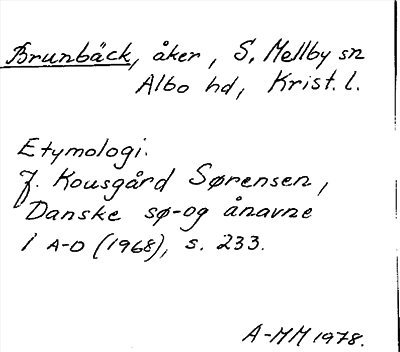 Brunbäck, åker, S. Mellby sn
Albo hd, Krist. l.
Etymologi.
J. Kousgård Sørensen,
Danske sø-og ånavne
I A-D (1968), s. 233.
A-MM 1978.